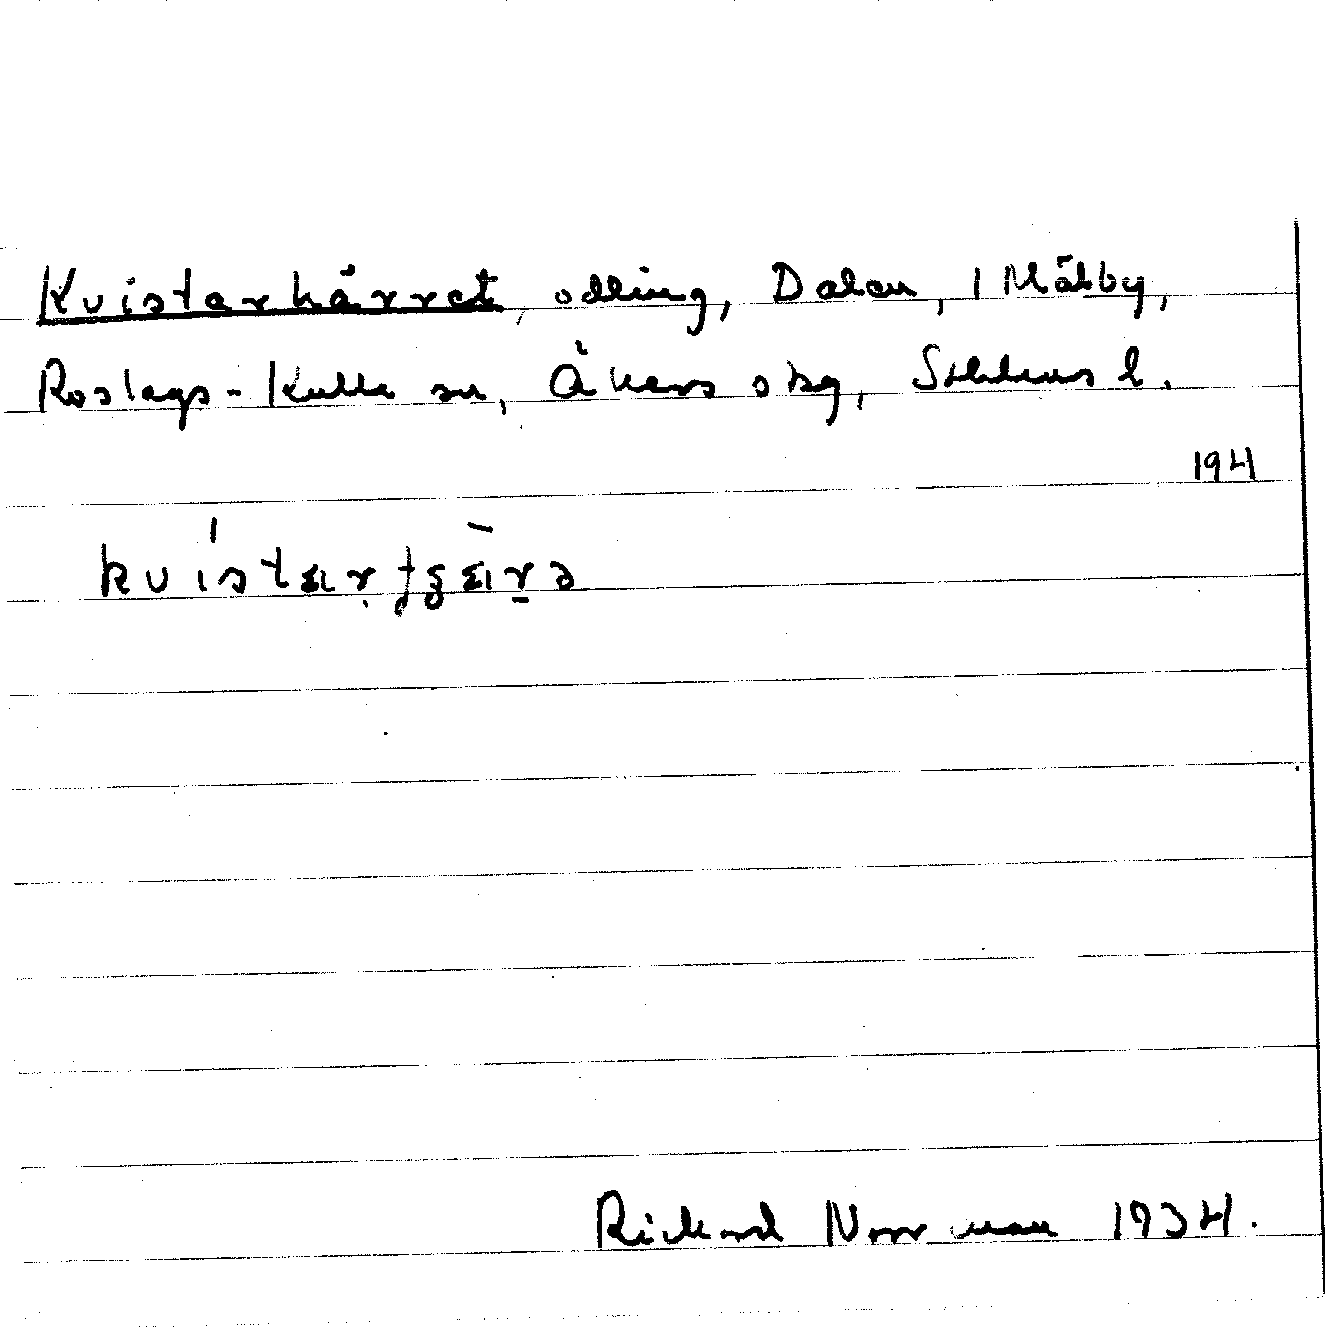 Kvistarkärret, odling, Dalen, 1 Mälby,
Roslags-Kulla sn, Åkers skg, Sthlms l.
194
kvistar
Rickard Norrman 1934.